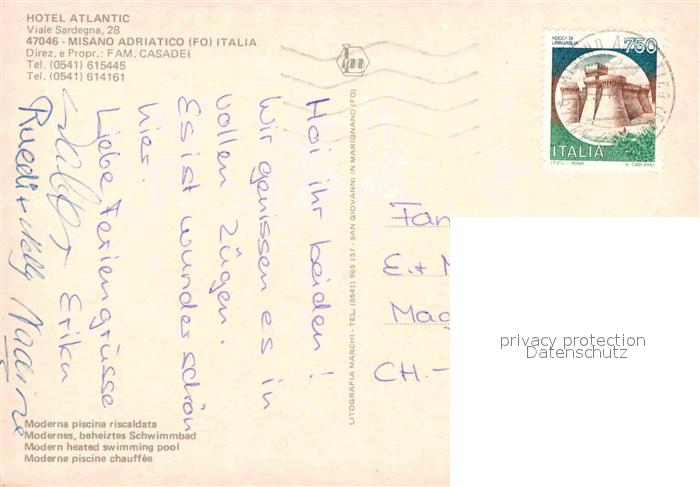 HOTEL ATLANTIC
Viale Sardegna, 28
47046 - MISANO ADRIATICO (FO) ITALIA
Direz. e Propr.: FAM. CASADEI
Tel. (0541) 615445
Tel. (0541) 614161
Hoi ihr beiden!
Wir genissen es in
vollen Zügen.
Es ist wunderschön
hier.
Liebe Feriengrüsse
Erika
Ruedi + Nelly Nadine
Moderna piscina riscaldata
Modernes, beheiztes Schwimmbad
Modern heated swimming pool
Moderne piscine chauffée
LITOGRAFIA MARCHI - TEL. (0541) 965 157 - SAN GIOVANNI IN MARIGNANO (FO)
ROCCA DI
URBISAGLIA
750
ITALIA
I.P.Z.S. - ROMA
Fam
E. + 
Mag
CH.-
privacy protection
Datenschutz